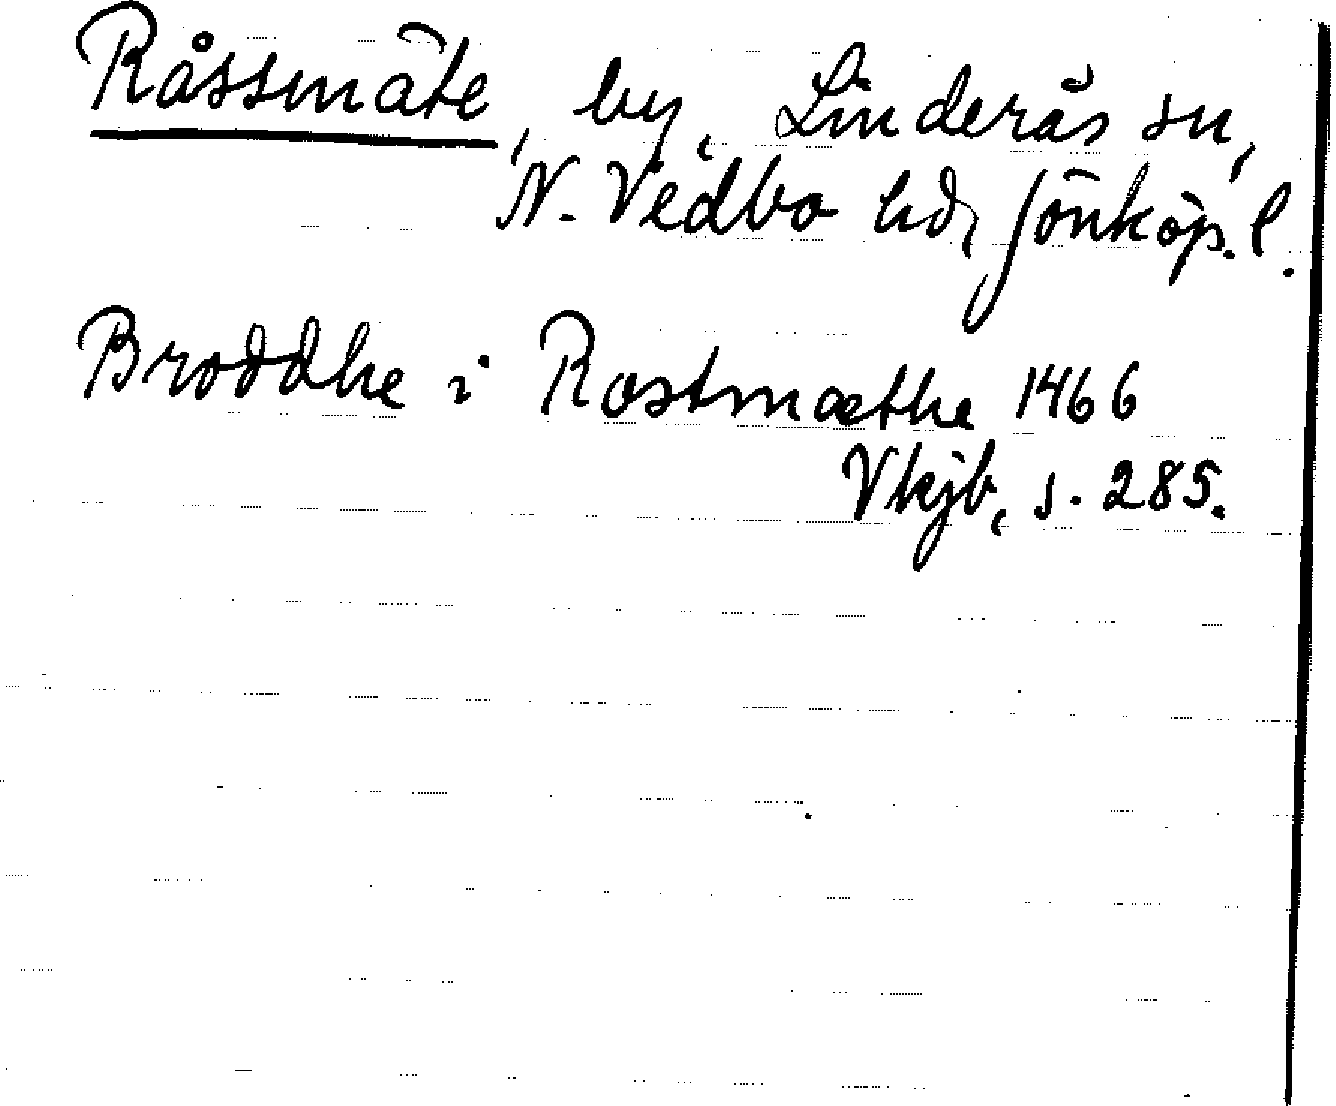 Råssmäte, by, Linderås sn,
N. Vedbo hd, Jönköp. l.
Broddhe i Rostmæthe 1466
Vkjb, s. 285.